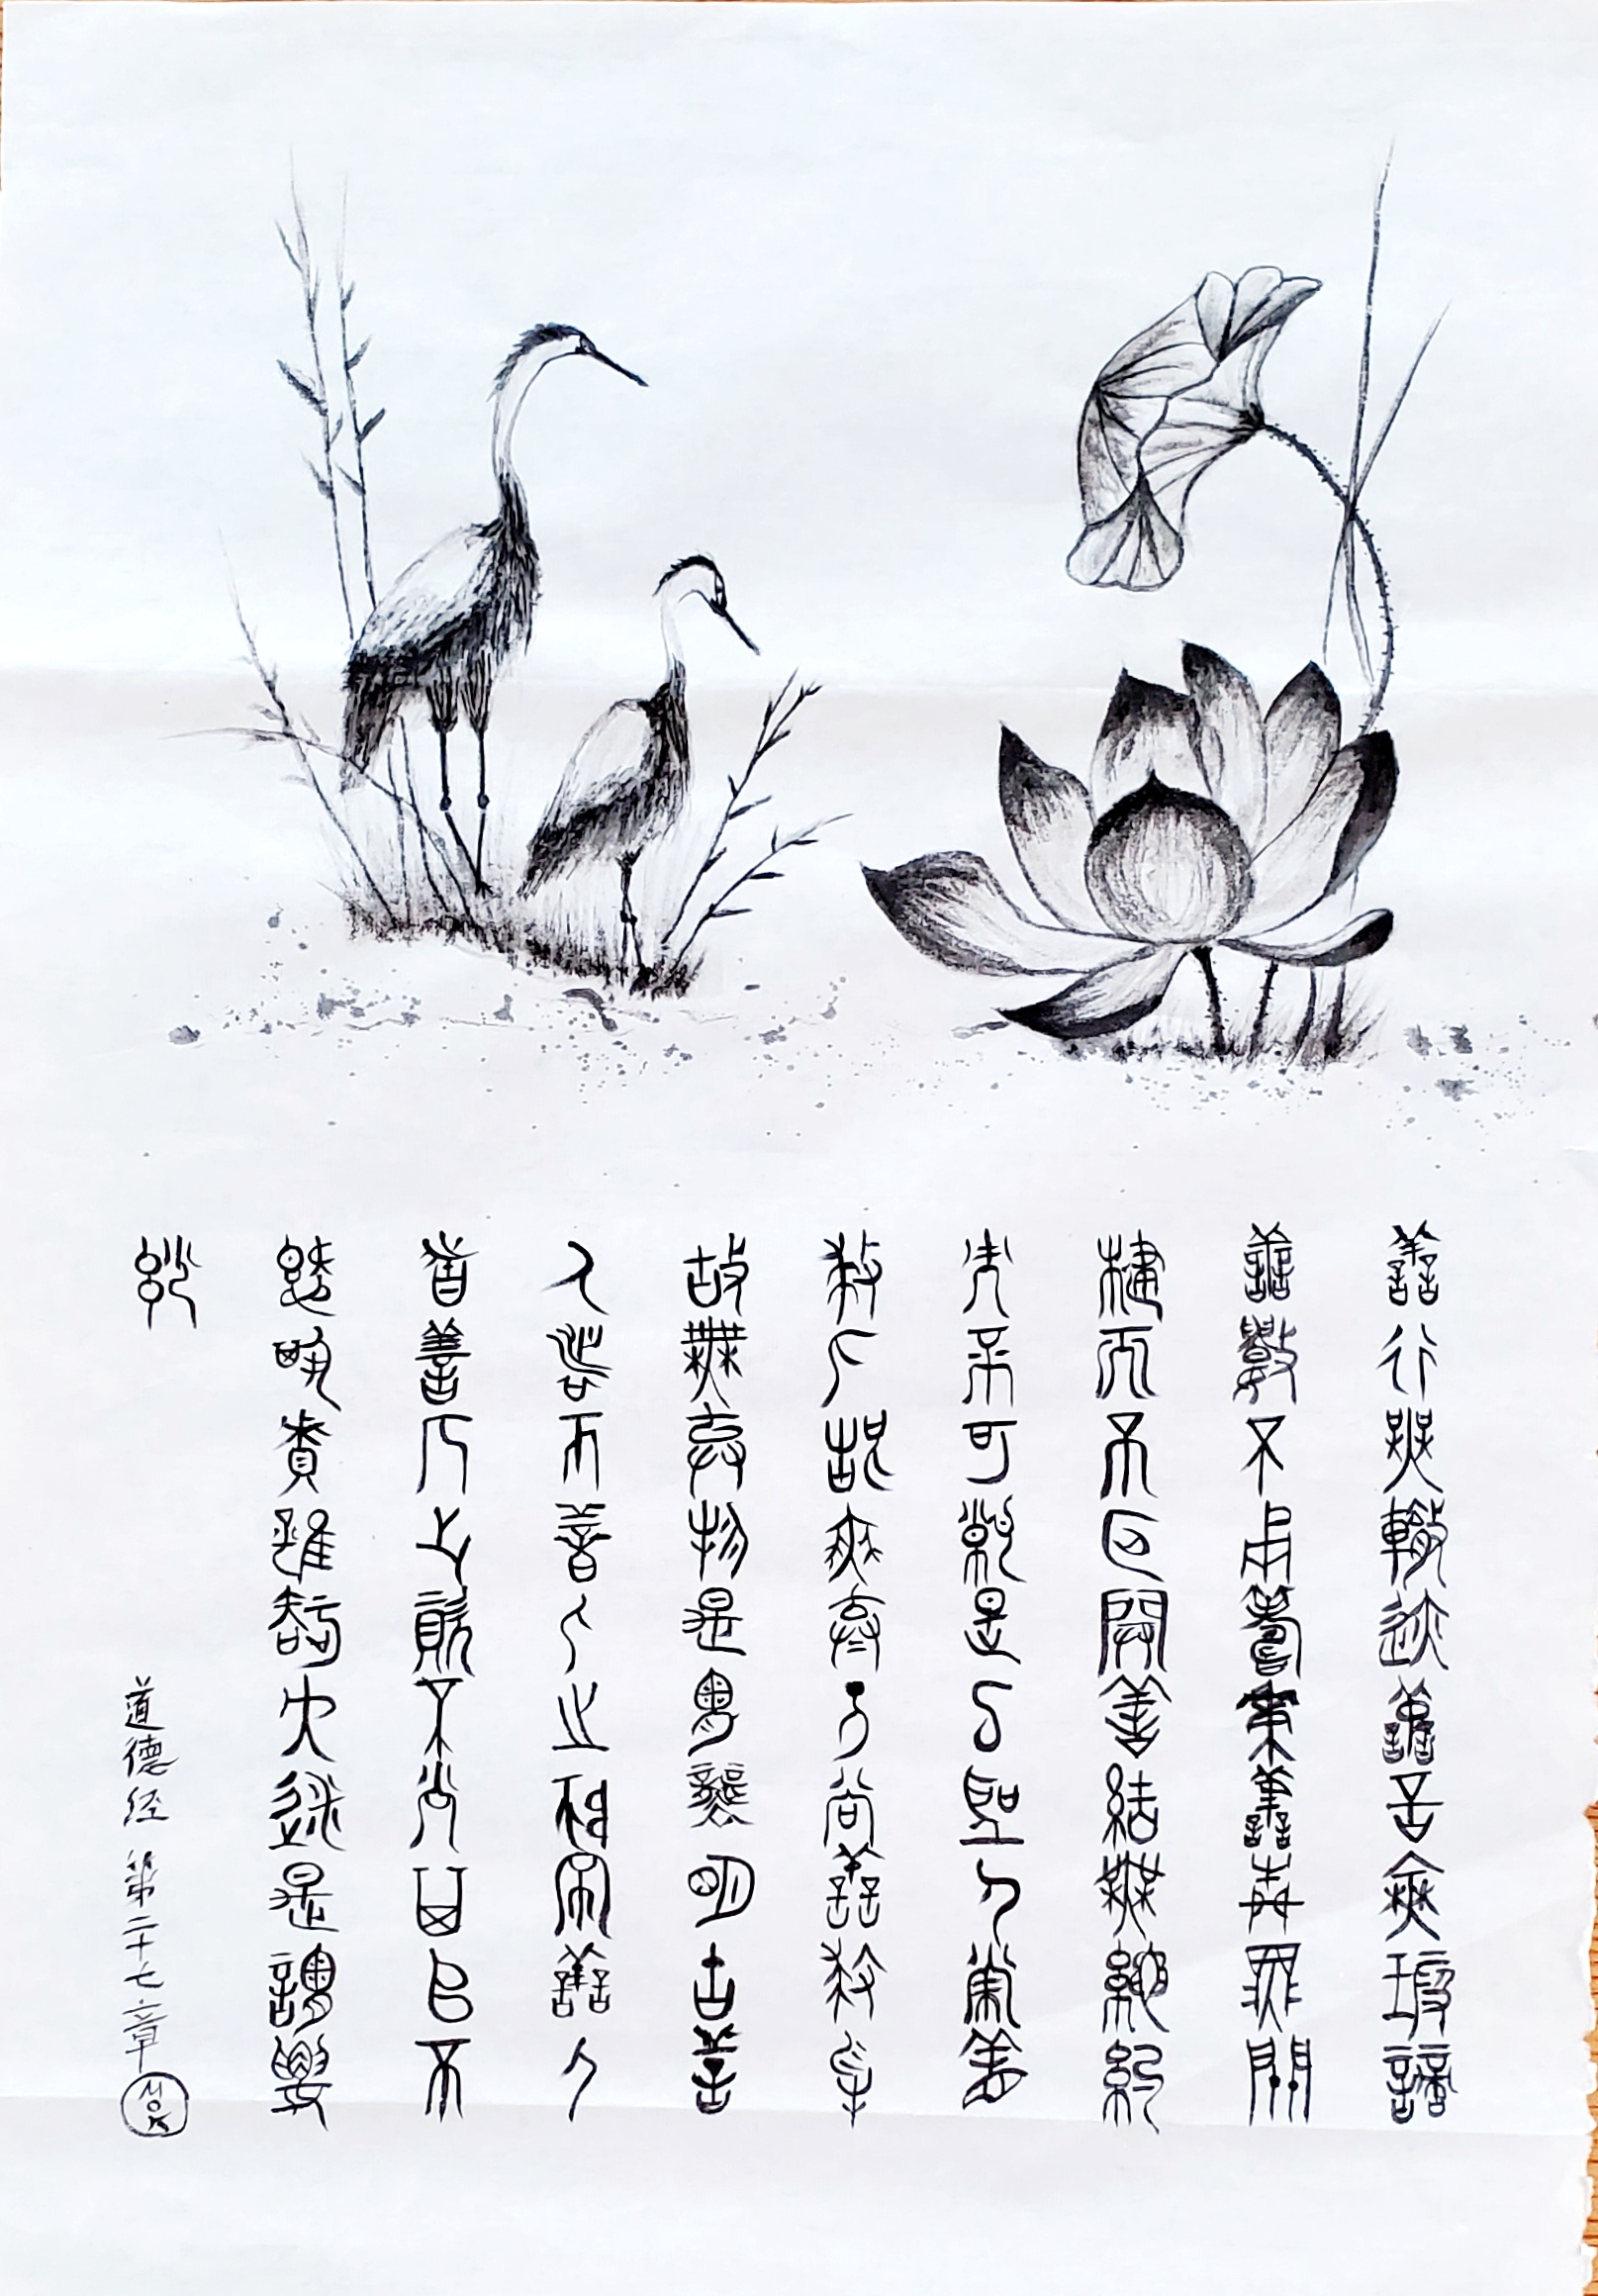 善行無轍迹善言無瑕讁
善數不用籌策善閉無關
楗而不可開善結無繩約
而不可解是以聖人常善
救人故無棄人常善救物
故無棄物是謂襲明故善
人者不善人之師不善人
者善人之資不貴其師不
愛其資雖智大迷是謂要
妙
道德经 第二十七章
MOK